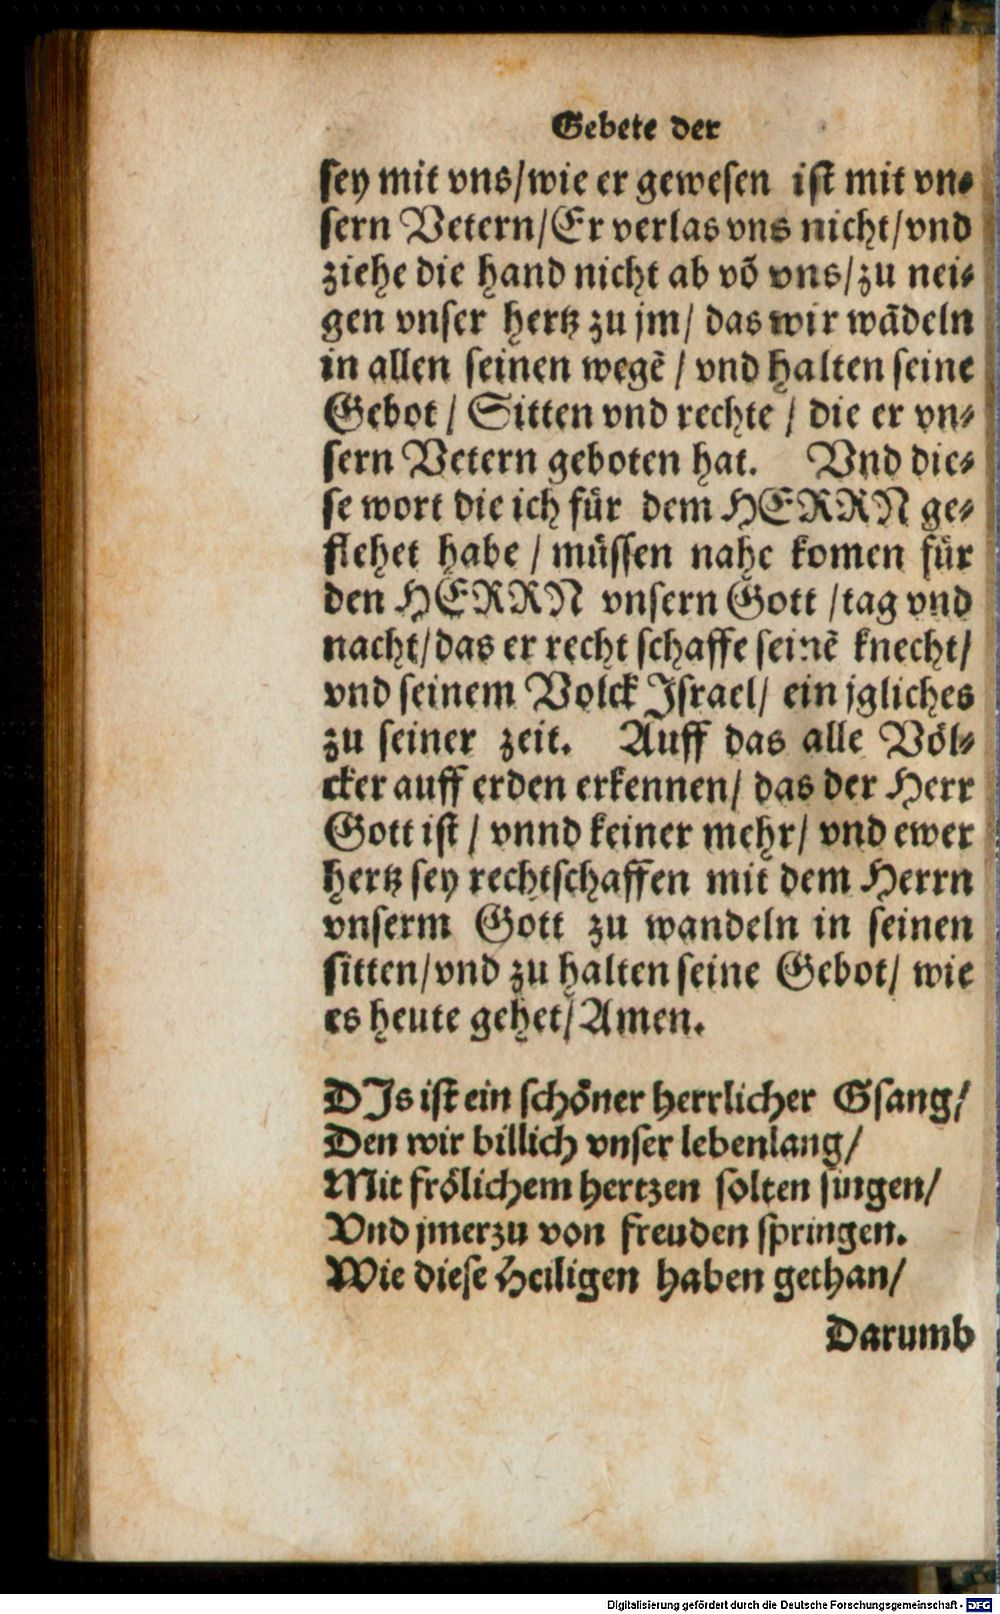 Gebete der
sey mit vns/wie er gewesen ist mit vn⸗
sern Vetern/Er verlas vns nicht/vnd
ziehe die hand nicht ab võ vns/zu nei⸗
gen vnser hertz zu jm/ das wir wãdeln
in allen seinen wegẽ / vnd halten seine
Gebot / Sitten vnd rechte / die er vn⸗
sern Vetern geboten hat. Vnd die⸗
se wort die ich fuͤr dem HERRN ge⸗
flehet habe / muͤssen nahe komen fuͤr
den HERRN vnsern Gott /tag vnd
nacht/das er recht schaffe seinẽ knecht/
vnd seinem Volck Israel/ ein jgliches
zu seiner zeit. Auff das alle Voͤl⸗
cker auff erden erkennen/ das der Herr
Gott ist / vnnd keiner mehr/ vnd ewer
hertz sey rechtschaffen mit dem Herrn
vnserm Gott zu wandeln in seinen
sitten/vnd zu halten seine Gebot/ wie
es heute gehet/Amen.
DIs ist ein schoͤner herrlicher Gsang/
Den wir billich vnser lebenlang/
Mit froͤlichem hertzen solten singen/
Vnd jmerzu von freuden springen.
Wie diese Heiligen haben gethan/
Darumb
Digitalisierung gefördert durch die Deutsche Forschungsgemeinschaft - DFG